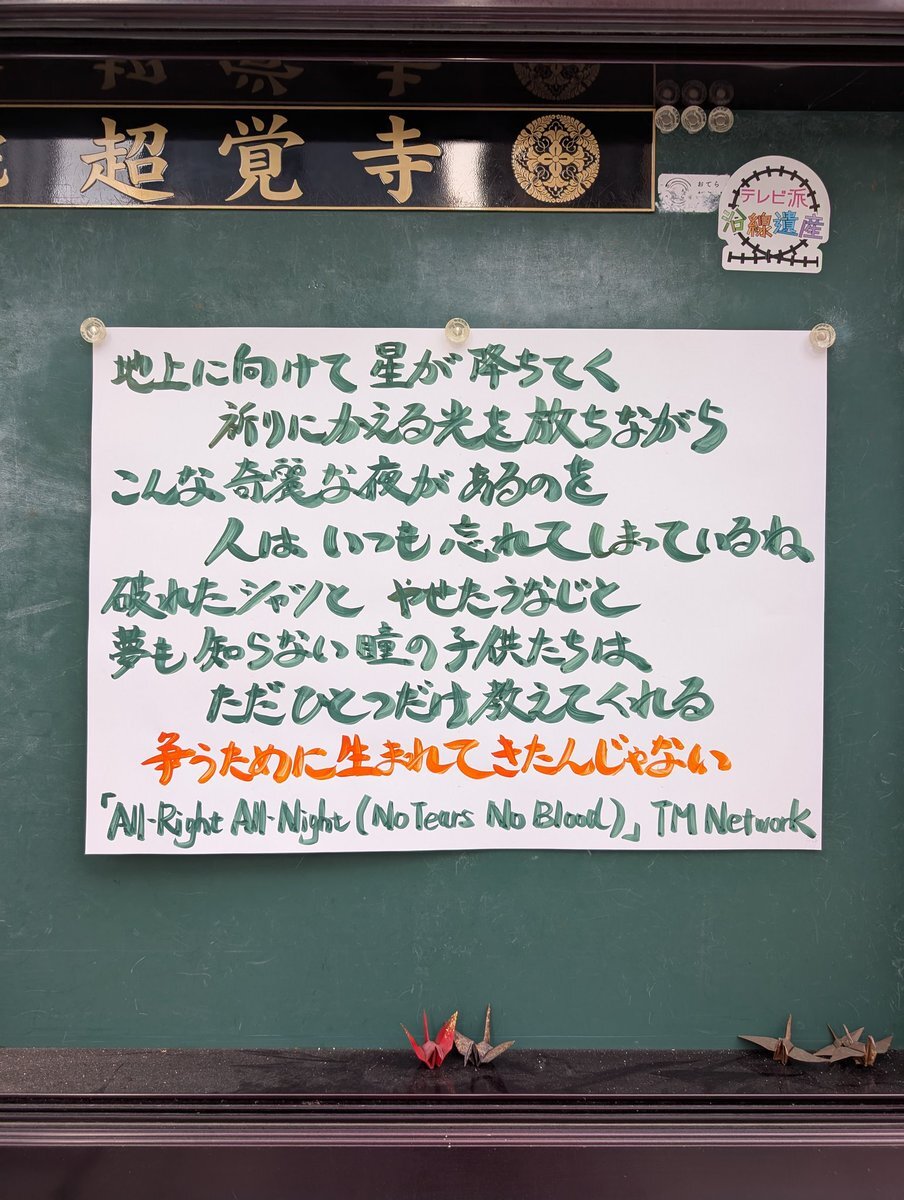 超覚寺
おてら
テレビ派
沿線遺産
地上に向けて 星が 降ちてく
祈りにかえる光を放ちながら
こんな奇麗な夜が あるのを
人は いつも 忘れてしまっているね
破れたシャツと やせたうなじと
夢も知らない瞳の子供たちは
ただひとつだけ教えてくれる
争うために生まれてきたんじゃない
「All-Right All-Night (No Tears No Blood)」 TM Network